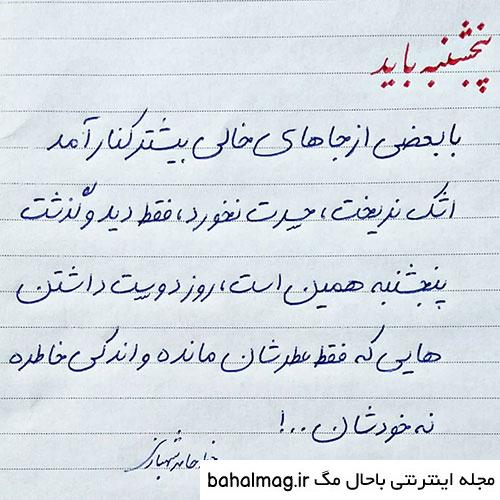 پنجشنبه باید
با بعضی از جاهای خالی بیشتر کنار آمد
اشک نریخت، حسرت نخورد، فقط دید و گذشت
پنجشنبه همین است، روز دوست داشتن
هایی که فقط عطرشان مانده و اندکی خاطره
نه خودشان ..!
مجله اینترنتی باحال مگ bahalmag.ir